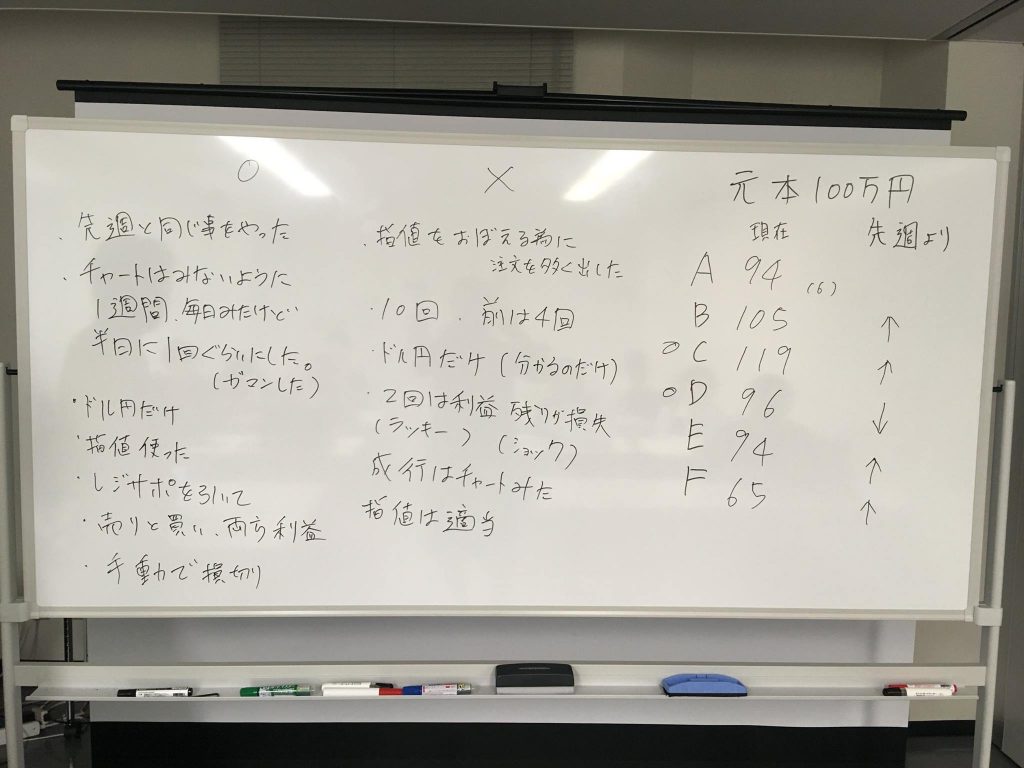 ○
・先週と同じ事をやった
・チャートはみないように
1週間、毎日みたけど
半日に1回ぐらいにした。
(ガマンした)
・ドル円だけ
・指値使った
・レジサポを引いて
・売りと買い、両方利益
・手動で損切り
×
・指値をおぼえる為に
注文を多く出した
・10回、前は4回
・ドル円だけ(分かるのだけ)
・2回は利益 残りが損失
(ラッキー) (ショック)
成行はチャートみた
指値は適当
元本100万円
現在 先週より
A 94 (6)
B 105 ↑
○C 119 ↑
○D 96 ↓
E 94 ↑
F 65 ↑